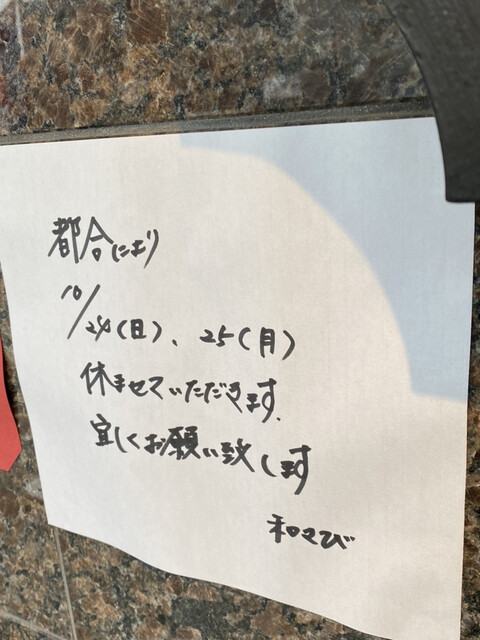 都合により
10/24(日)、25(月)
休ませていただきます.
宜しくお願い致します
和さび